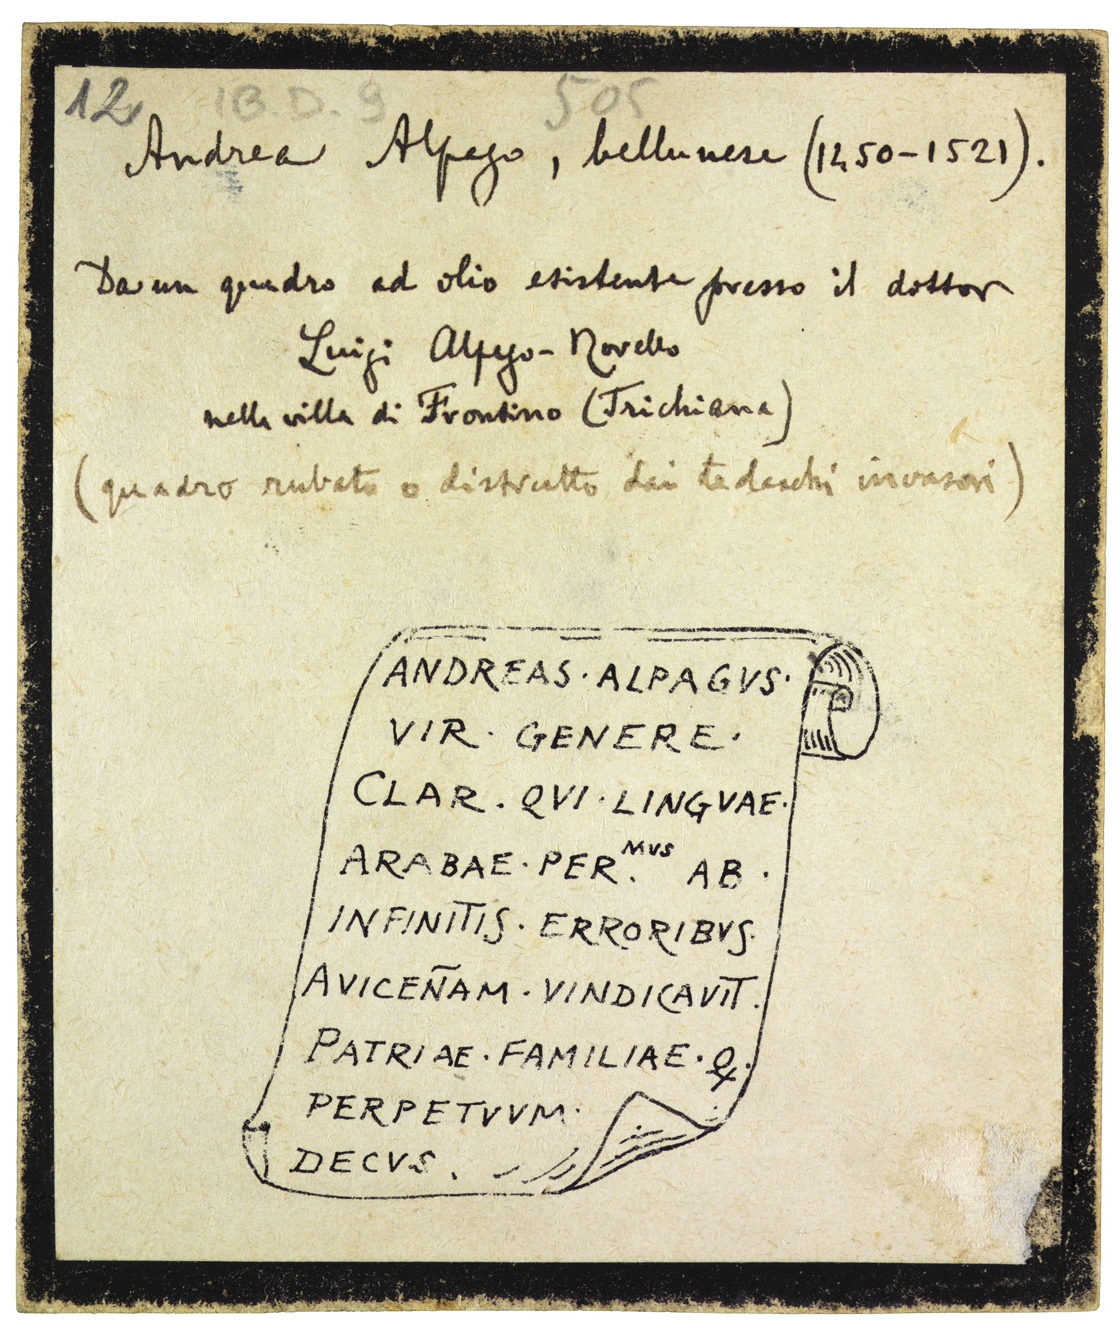 12 1B.D.9 505
Andrea Alpago, bellunese (1450-1521).
Da un quadro ad olio esistente presso il dottor
Luigi Alpago-Novello
nella villa di Frontino (Trichiana)
(quadro rubato o distrutto dai tedeschi invasori)
ANDREAS · ALPAGVS ·
VIR · GENERE ·
CLAR . QVI · LINGVAE ·
ARABAE · PER.MVS AB ·
INFINITIS · ERRORIBVS.
AVICEÑAM · VINDICAVIT.
PATRIAE · FAMILIAE · Q.
PERPETVVM ·
DECVS .